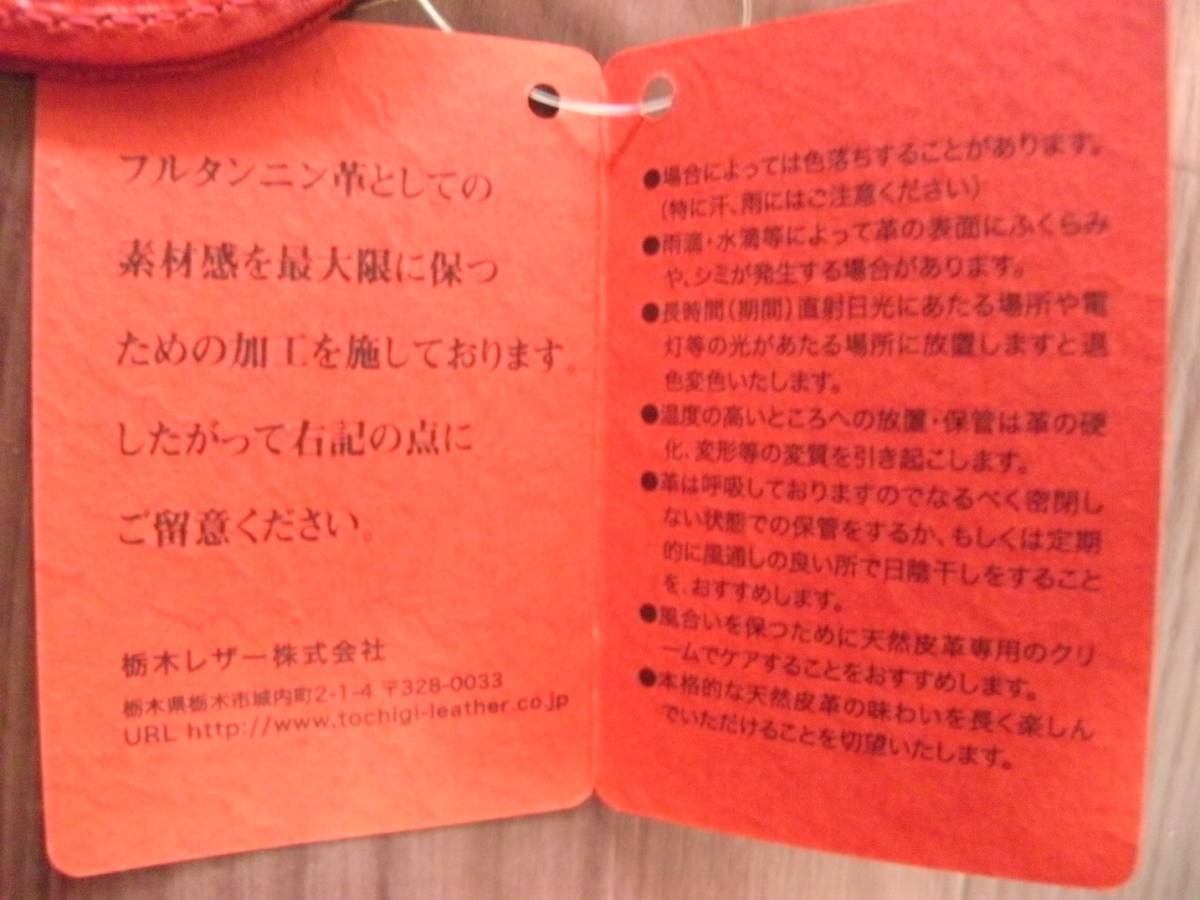 フルタンニン革としての
素材感を最大限に保つ
ための加工を施しております。
したがって右記の点に
ご留意ください。
栃木レザー株式会社
栃木県栃木市城内町2-1-4 〒328-0033
URL http://www.tochigi-leather.co.jp
●場合によっては色落ちすることがあります。
(特に汗、雨にはご注意ください)
●雨滴・水滴等によって革の表面にふくらみ
や、シミが発生する場合があります。
●長時間(期間)直射日光にあたる場所や電
灯等の光があたる場所に放置しますと退
色変色いたします。
●温度の高いところへの放置・保管は革の硬
化、変形等の変質を引き起こします。
●革は呼吸しておりますのでなるべく密閉し
ない状態での保管をするか、もしくは定期
的に風通しの良い所で日陰干しをすること
を、おすすめします。
●風合いを保つために天然皮革専用のクリ
ームでケアすることをおすすめします。
●本格的な天然皮革の味わいを長く楽しん
でいただけることを切望いたします。